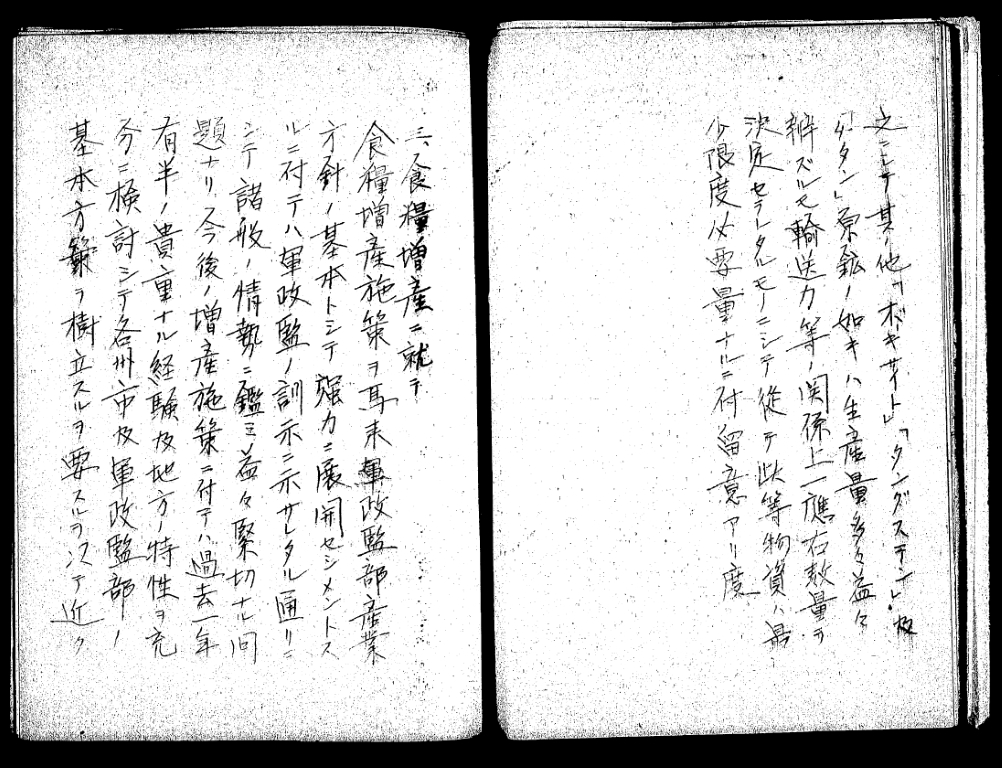 之ニシテ其ノ他「ボーキサイト」「タングステン」及
「チタン」原鉱ノ如キハ生産量多々益々
辨ズルモ輸送力等ノ関係上一應右数量ヲ
決定セラレタルモノニシテ従テ此等物資ハ最
少限度必要量ナルニ付留意アリ度
三、食糧増産ニ就テ
食糧増産施策ヲ馬来軍政監部産業
方針ノ基本トシテ強力ニ展開セシメントス
ルニ付テハ軍政監ノ訓示ニ示サレタル通リニ
シテ諸般ノ情勢ニ鑑ミ益々緊切ナル問
題ナリ今後ノ増産施策ニ付テハ過去一年
有半ノ貴重ナル経験及地方ノ特性ヲ充
分ニ検討シテ各州市及軍政監部ノ
基本方策ヲ樹立スルヲ要スルヲ以テ近ク